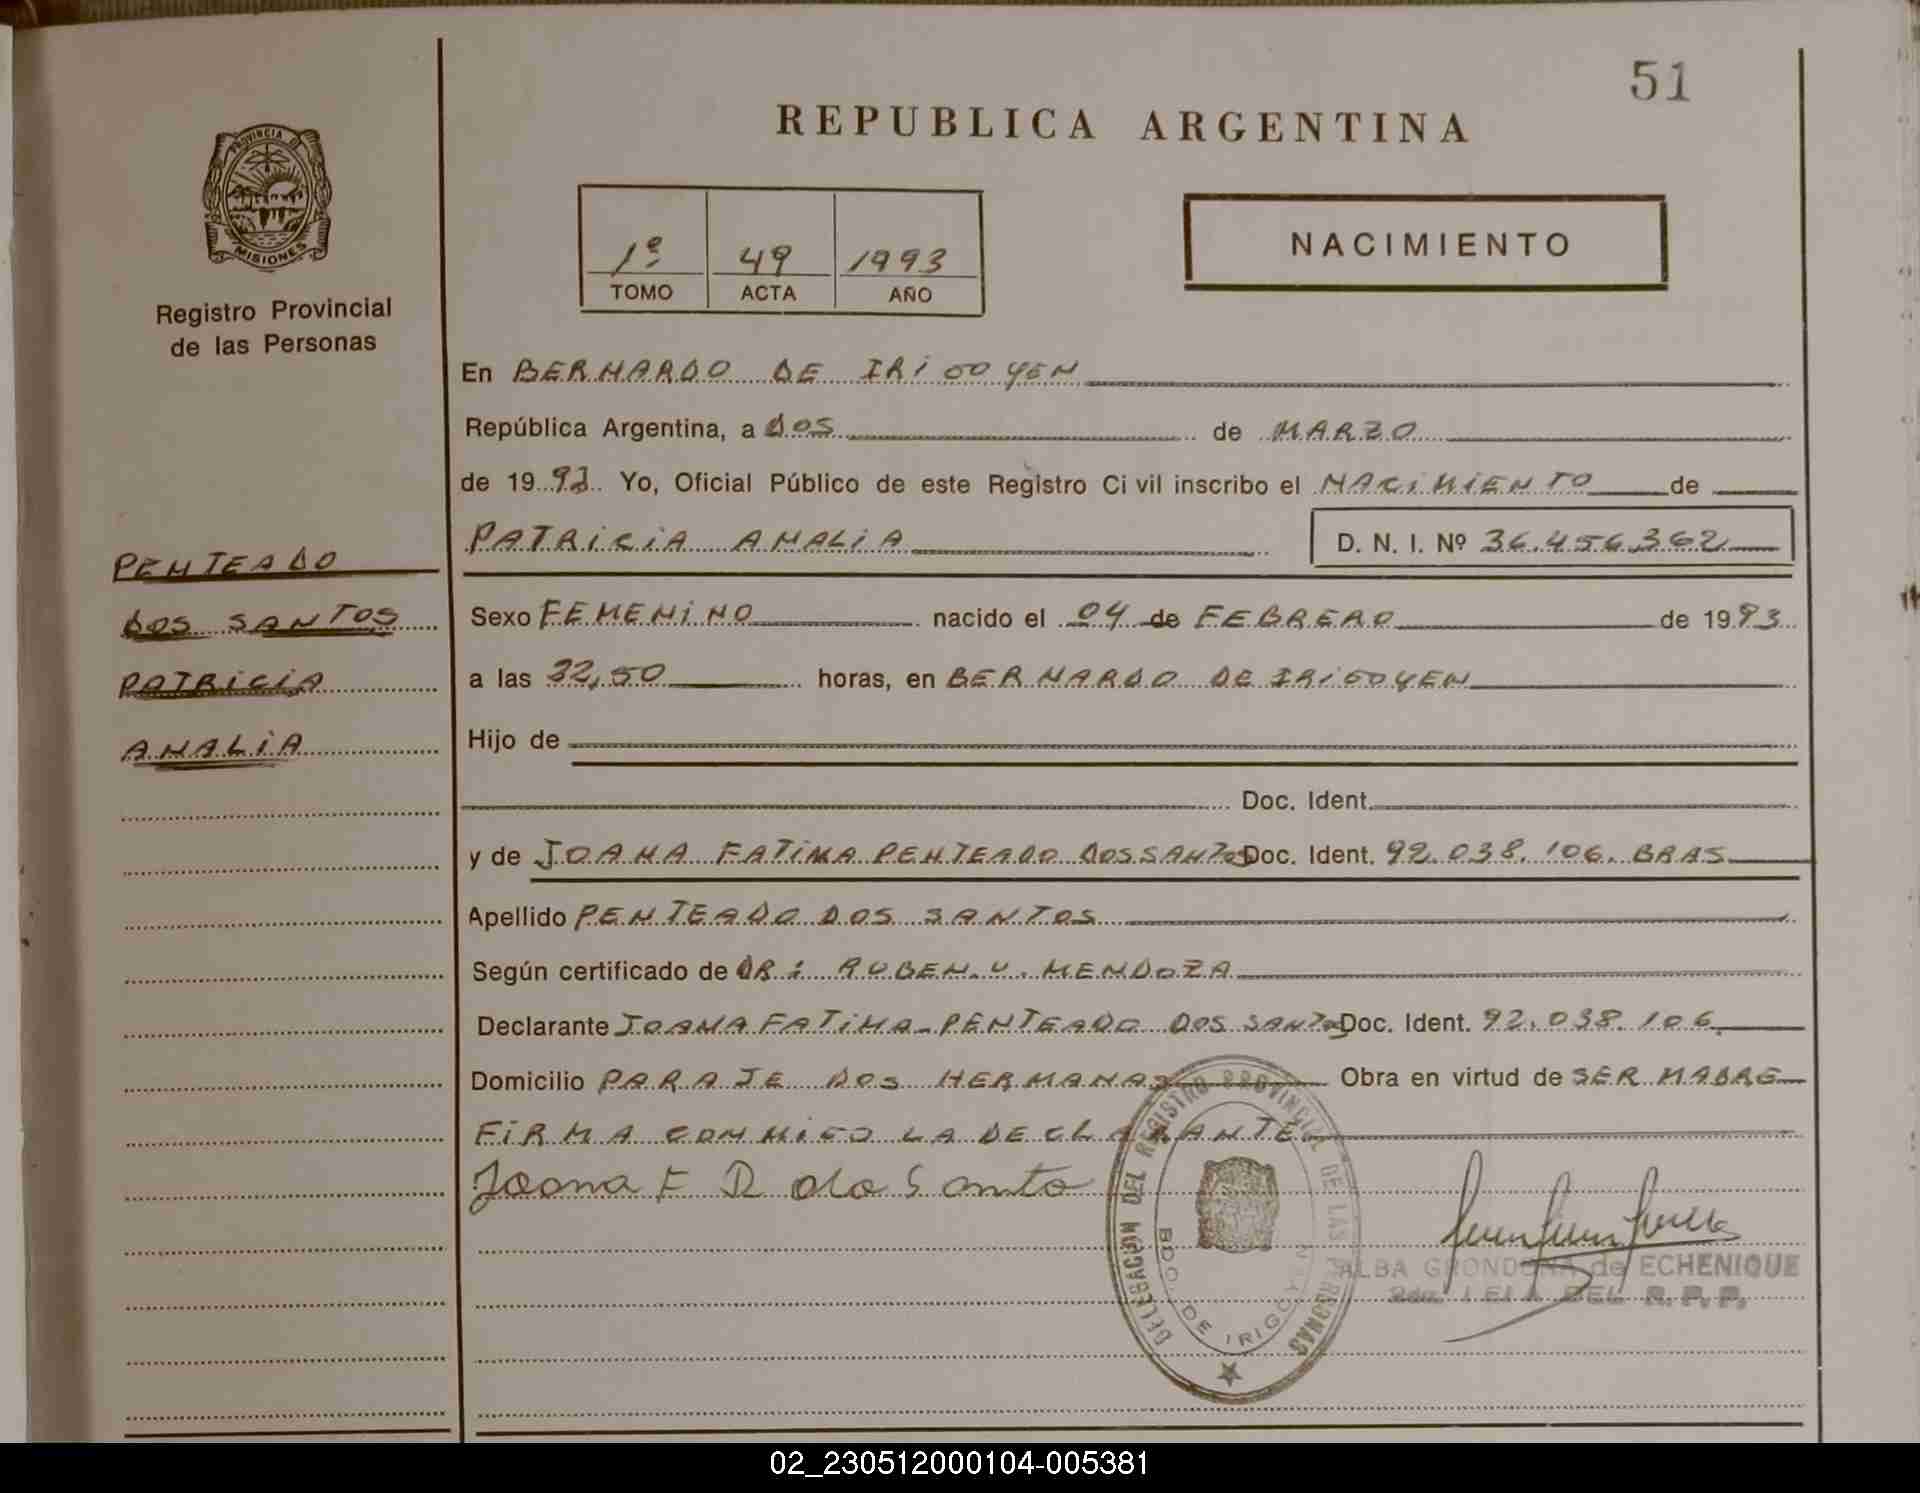 51
REPUBLICA ARGENTINA
PROVINCIA DE
MISIONES
Registro Provincial
de las Personas
1º 49 1993
TOMO ACTA AÑO
NACIMIENTO
En BERNARDO DE IRIGOYEN
República Argentina, a DOS de MARZO
de 1993 Yo, Oficial Público de este Registro Civil inscribo el NACIMIENTO de
PATRICIA AMALIA D. N. I. Nº 36.456.362
PENTEADO
DOS SANTOS
PATRICIA
AMALIA
Sexo FEMENINO nacido el 04 de FEBRERO de 1993
a las 22,50 horas, en BERNARDO DE IRIGOYEN
Hijo de
Doc. Ident.
y de JOANA FATIMA PENTEADO DOS SANTOS Doc. Ident. 92.038.106. BRAS
Apellido PENTEADO DOS SANTOS
Según certificado de DR: RUBEN.V. MENDOZA
Declarante JOANA FATIMA PENTEADO DOS SANTOS Doc. Ident. 92.038.106
Domicilio PARAJE DOS HERMANAS Obra en virtud de SER MADRE
FIRMA CONMIGO LA DECLARANTE
Joana F D do Santo
DELEGACION DEL REGISTRO PROVINCIAL DE LAS PERSONAS
BDO. DE IRIGOYEN
ALBA GRONDONA de ECHENIQUE
DEL R.P.P.
02_230512000104-005381